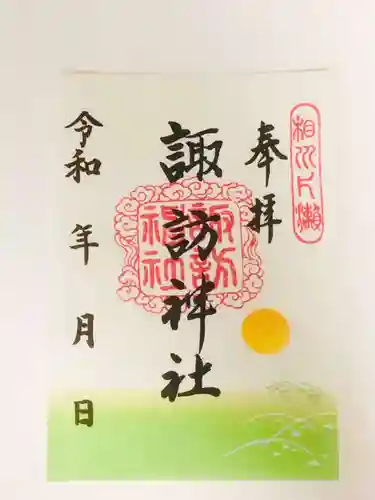 相州片瀬
奉拝
諏訪神社
諏訪神社
令和 年 月 日